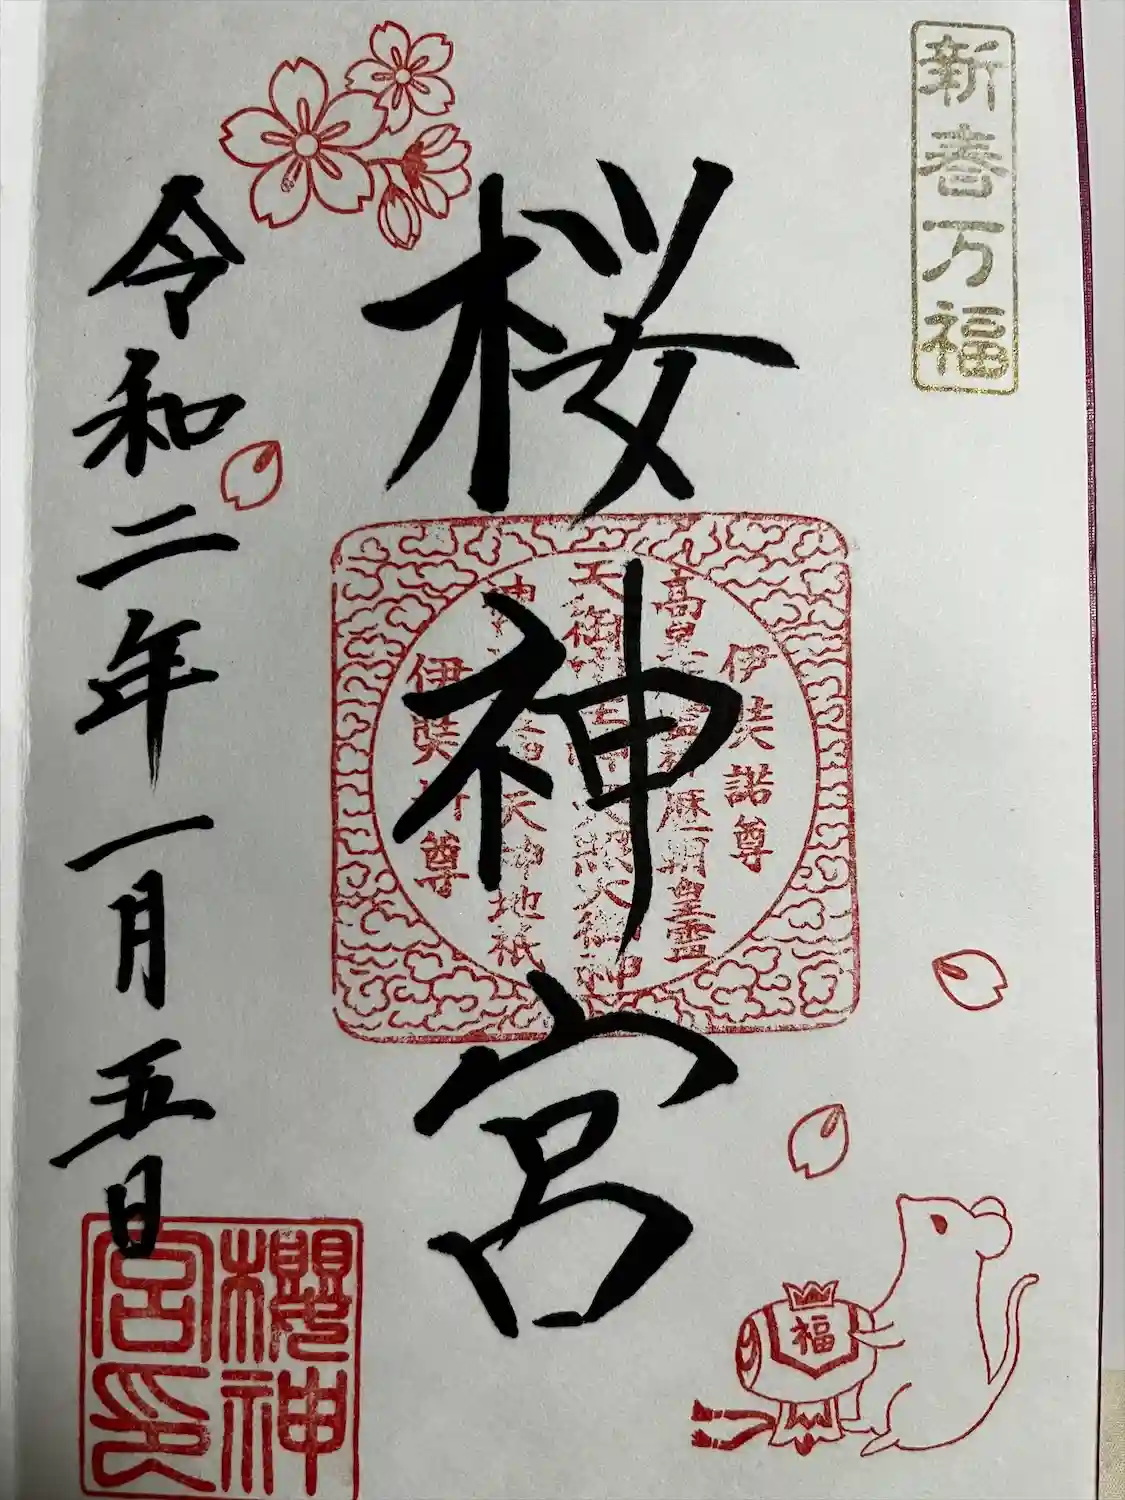 新春万福
桜神宮
伊弉諾尊
高皇 神歴朝皇霊
天御 天照大御神
神 天神地祇
伊弉 尊
福
令和二年一月五日
櫻神
宮印